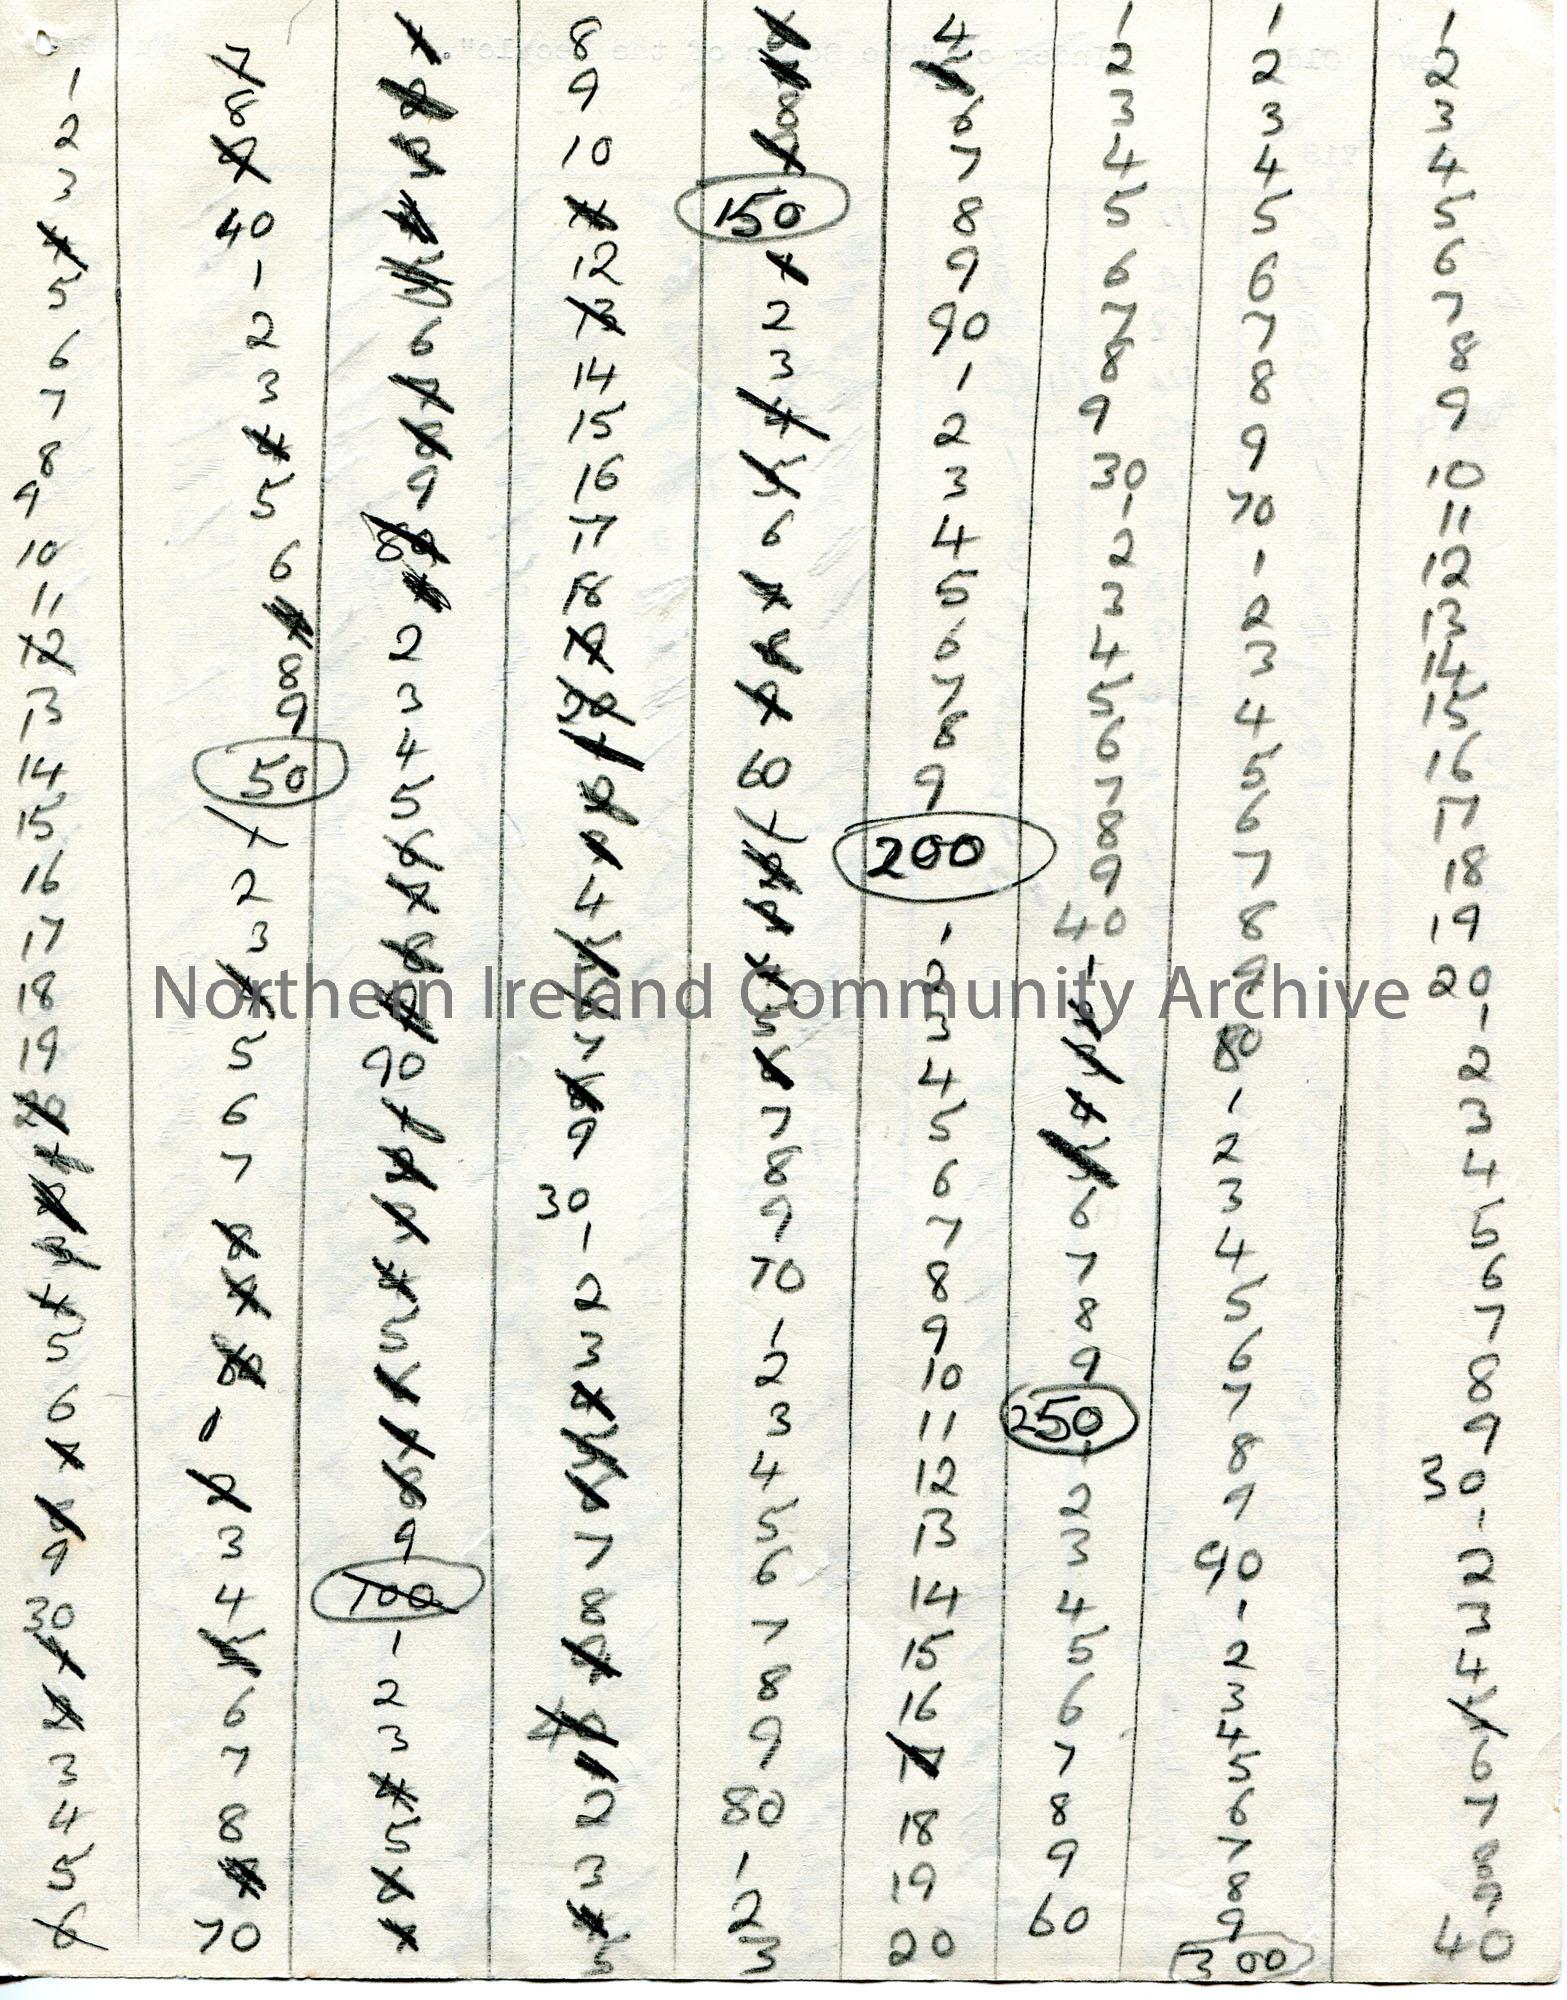 1
2
3
4
5
6
7
8
9
10
11
12
13
14
15
16
17
18
19
20
1
2
3
4
5
6
7
8
9
30
1
2
3
4
5
6
7
8
9
40
1
2
3
4
5
6
7
8
9
50
1
2
3
4
5
6
7
8
9
60
1
2
3
4
5
6
7
8
9
70
1
2
3
4
5
6
7
8
9
80
1
2
3
4
5
6
7
8
9
90
1
2
3
4
5
6
7
8
9
100
1
2
3
4
5
6
7
8
9
10
11
12
13
14
15
16
17
18
19
20
1
2
3
4
5
6
7
8
9
30
1
2
3
4
5
6
7
8
9
40
1
2
3
4
5
6
7
8
9
150
1
2
3
4
5
6
7
8
9
60
1
2
3
4
5
6
7
8
9
70
1
2
3
4
5
6
7
8
9
80
1
2
3
4
5
6
7
8
9
90
1
2
3
4
5
6
7
8
9
200
1
2
3
4
5
6
7
8
9
10
11
12
13
14
15
16
17
18
19
20
1
2
3
4
5
6
7
8
9
30
1
2
3
4
5
6
7
8
9
40
1
2
3
4
5
6
7
8
9
250
1
2
3
4
5
6
7
8
9
60
1
2
3
4
5
6
7
8
9
70
1
2
3
4
5
6
7
8
9
80
1
2
3
4
5
6
7
8
9
90
1
2
3
4
5
6
7
8
9
300
1
2
3
4
5
6
7
8
9
10
11
12
13
14
15
16
17
18
19
20
1
2
3
4
5
6
7
8
9
30
1
2
3
4
5
6
7
8
9
40
Northern Ireland Community Archive